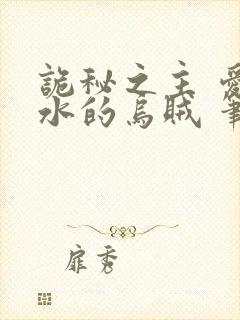 詭秘之主
水的烏賊
扉秀